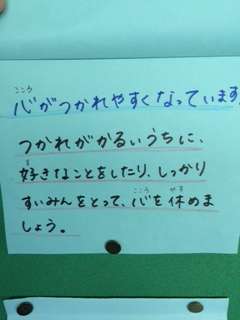 こころ
心がつかれやすくなっています
つかれがかるいうちに、
す
好きなことをしたり、しっかり
こころ やす
すいみんをとって、心を休めま
しょう。